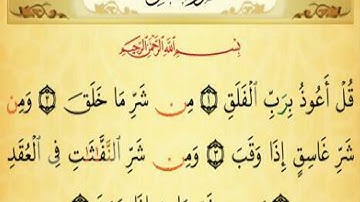 بِسْمِ اللَّهِ الرَّحْمَٰنِ الرَّحِيمِ
قُلْ أَعُوذُ بِرَبِّ الْفَلَقِ ١ مِن شَرِّ مَا خَلَقَ ٢ وَمِن
شَرِّ غَاسِقٍ إِذَا وَقَبَ ٣ وَمِن شَرِّ النَّفَّاثَاتِ فِي الْعُقَدِ